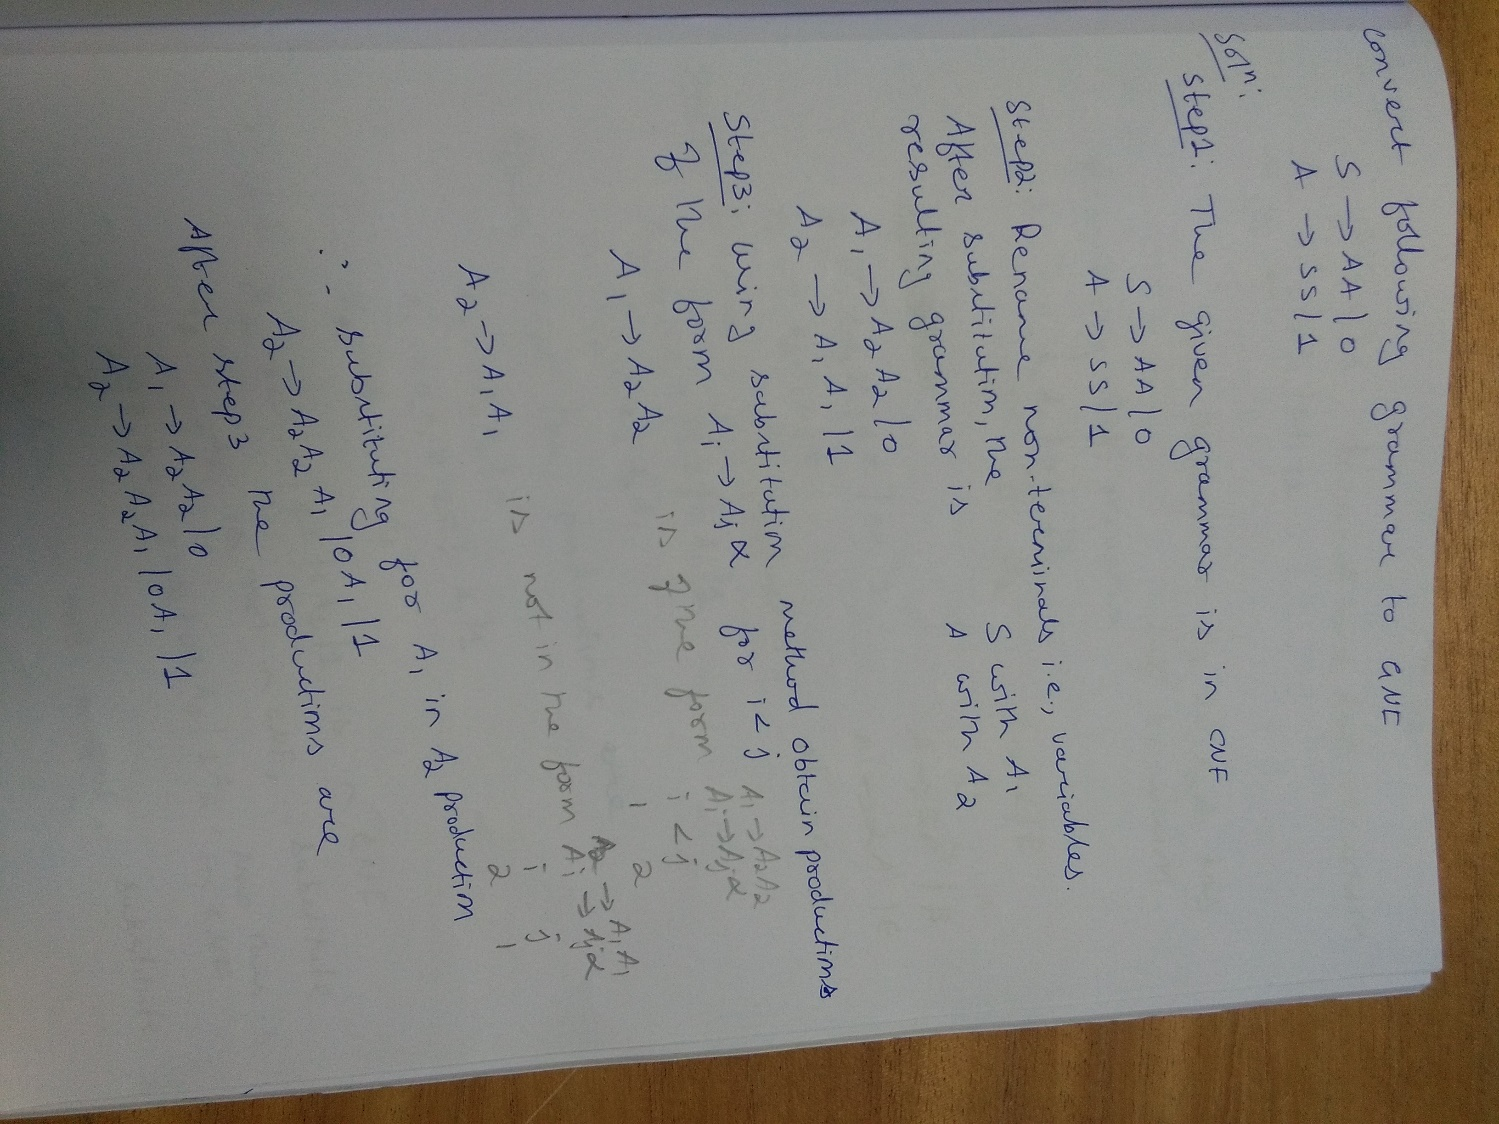 convert following grammar to GNF
S → AA | 0
A → SS | 1
Soln:
Step1: The given grammar is in CNF
S → AA | 0
A → SS | 1
Step2: Rename non-terminals i.e., variables.
S with A1
A with A2
After substitution, the
resulting grammar is
A1 → A2 A2 | 0
A2 → A1 A1 | 1
Step3: using substitution method obtain productions
of the form Ai → Aj α for i < j
A1 → A2A2
Ai → Aj α
i < j
1 2
A1 → A2 A2 is of the form
A2 → A1 A1 is not in the form
A2 → A1 A1
Ai → Aj α
i j
2 1
∴ substituting for A1 in A2 production
A2 → A2 A2 A1 | 0A1 | 1
After step3 the productions are
A1 → A2 A2 | 0
A2 → A2 A2 A1 | 0A1 | 1